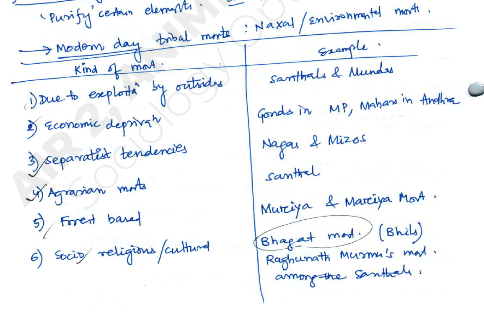 'Purify' certain elements.
→ Modern day tribal movts : Naxal / Environmental movts.
Kind of movt. Example.
1) Due to exploitn by outsides Santhals & Mundas
2) Economic deprivn Gonds in MP, Mahars in Andhra
3) Separatist tendencies Nagas & Mizos
4) Agrarian movts Santhal
5) Forest based Murciya & Marciya Movt.
6) Socio/religious/cultural Bhagat movt. (Bhils)
Raghunath Murmu's movt.
among the Santhals.